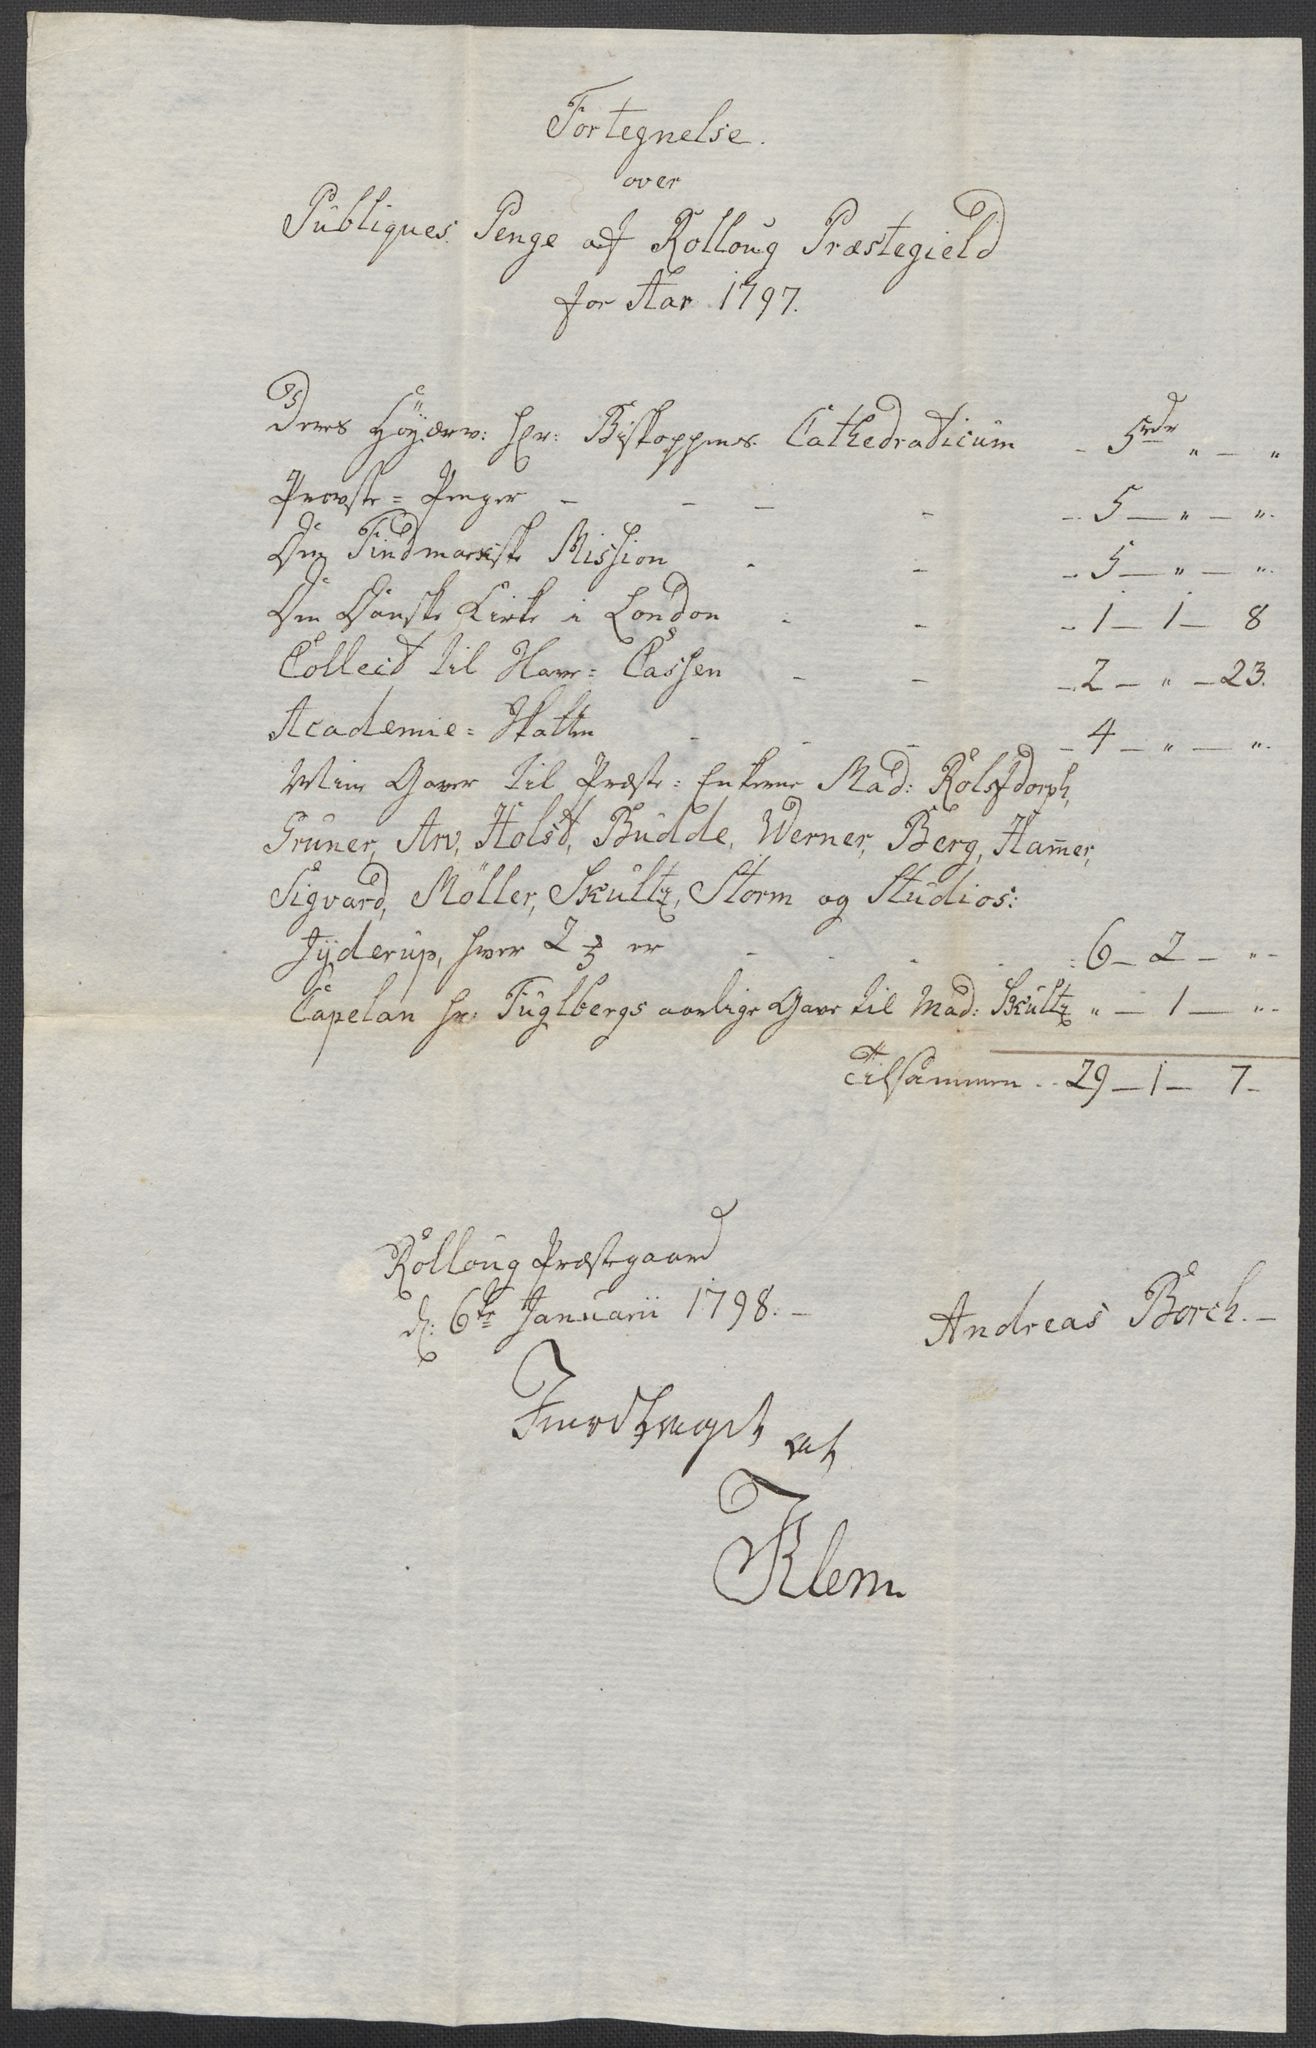 Fortegnelse.
over
Publiques Penge af Rolloug Præstegield
for Aar 1797.
Deres Höyærv: Hr: Biskoppens Cathedraticum - 5 rdr " - "
Provste = Penger - - - - - 5 - " - "
Den Findmarkske Mission - - - 5 - " - "
Den Danske Kirke i London - - - 1 - 1 - 8
Collect til Havr= Cassen - - - 2 - " - 23.
Academie = Skatten - - - - 4 - " - "
Mine Gaver til Præste = Enkerne Mad: Rolsfdorph,
Grüner, Arv, Holst, Budde, Werner, Berg, Ham̄er,
Sigvard, Möller, Skultz, Storm og Studios:
Jÿderup, hver 2 er - - - - 6 - 2 - " -
Capelan Hr: Fuglbergs aarlige Gave til Mad: Skultz " - 1 - " -
Tilsammen - - 29 - 1 - 7 -
Rolloug Præstegaard
d: 6te Januarii 1798. -
Andreas Borch. -
af
Klem